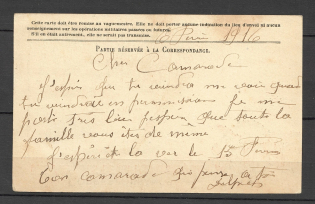 Cette carte doit être remise au vaguemestre. Elle ne doit porter aucune indication du lieu d'envoi ni aucun
renseignement sur les opérations militaires passées ou futures.
S'il en était autrement, elle ne serait pas transmise.
1916
PARTIE RÉSERVÉE À LA CORRESPONDANCE.
Cher Camarade
J'espère que tu viendra me voir quand
tu viendra en permission je me
porte très bien j'espère que toute la
famille vous ête de même
J'espère te voir le
Ton camarade qui pense à toi